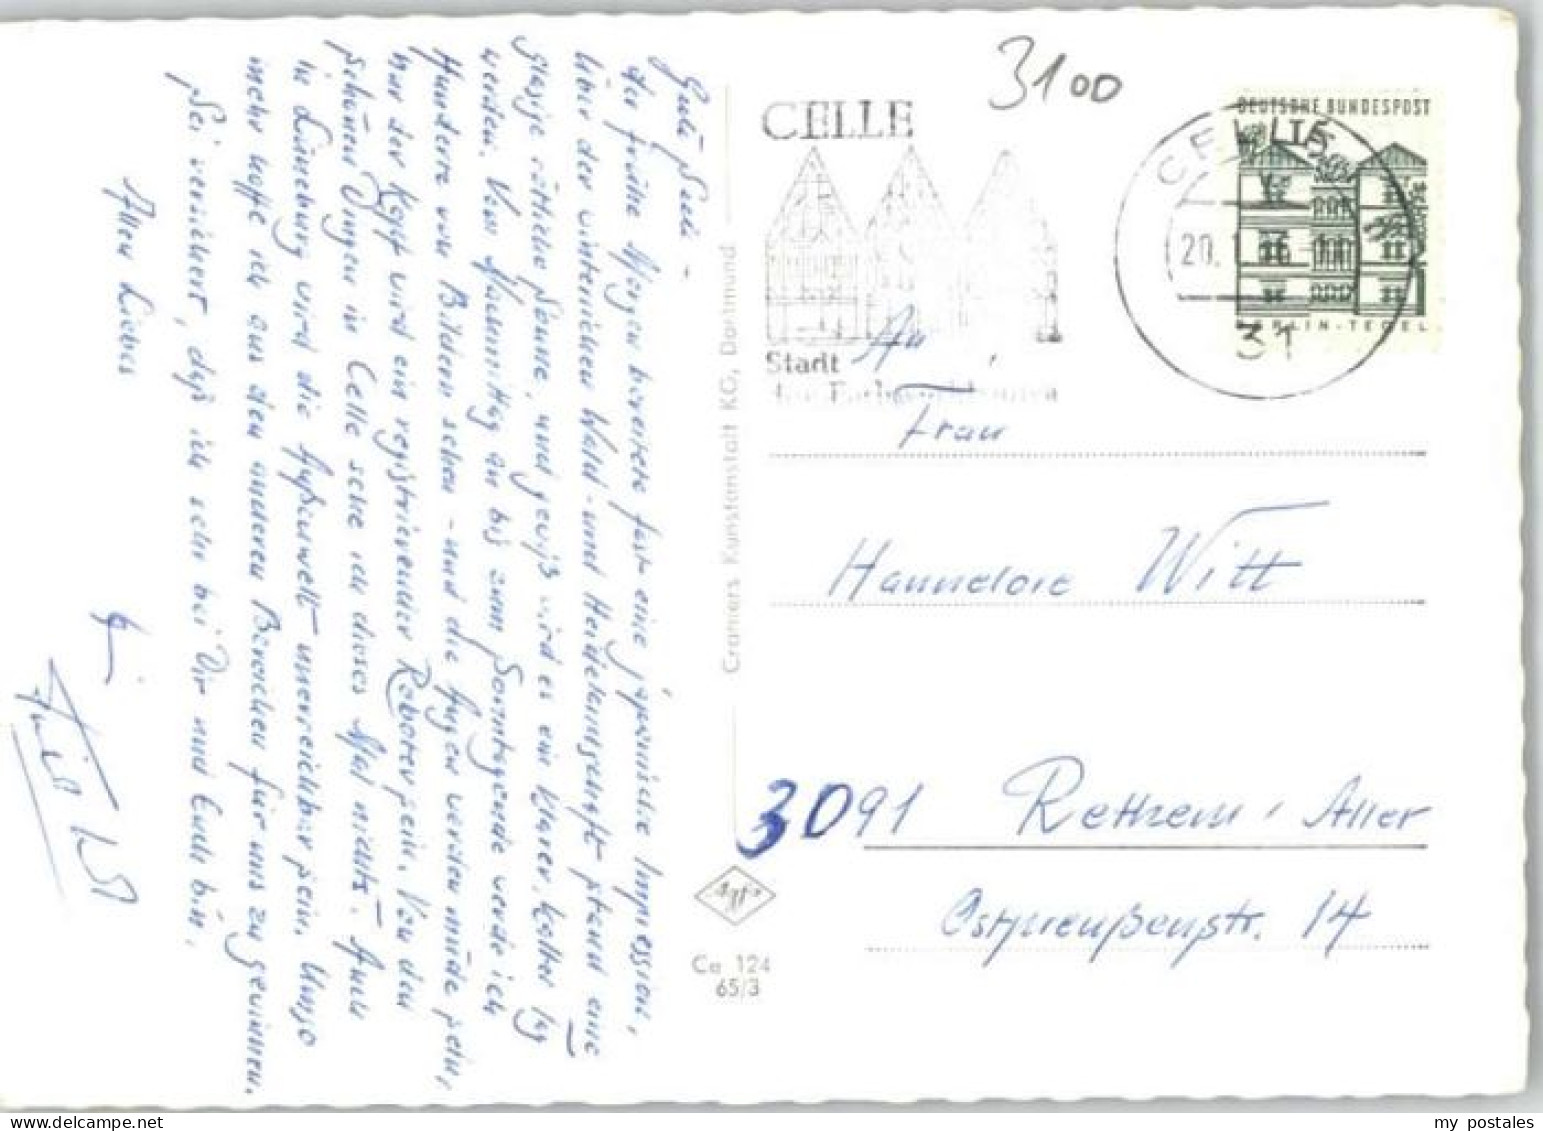 Gudi Sudi -
der frühe Morgen bereitete fast eine japanische Impression,
über der winterlichen Wald- und Heidelandschaft stand eine
glasige rötliche Sonne, und gewiß wird es ein klarer, kalter Tag
werden. Vom Nachmittag an bis zum Sonntagende werde ich
Hunderte von Bildern sehen - und die Augen werden müde sein,
nur der Kopf wird ein registrierender Roboter sein. Von den
schönen Dingen in Celle sehe ich dieses Mal nichts. Auch
in Lüneburg wird die Außenwelt unerreichbar sein. Umso
mehr hoffe ich aus den anderen Bereichen für uns zu gewinnen.
Sei versichert, daß ich sehr bei Dir und Euch bin.
Allen Liebes
3100
CELLE
Stadt
der Fachwerkhäuser
CELLE
20.
31
DEUTSCHE BUNDESPOST
15
BERLIN-TEGEL
An
Frau
Hannelore Witt
3091 Rethem / Aller
Ostpreußenstr. 14
Cramers Kunstanstalt KG, Dortmund
Agfa
Ce 124
65/3
my postales